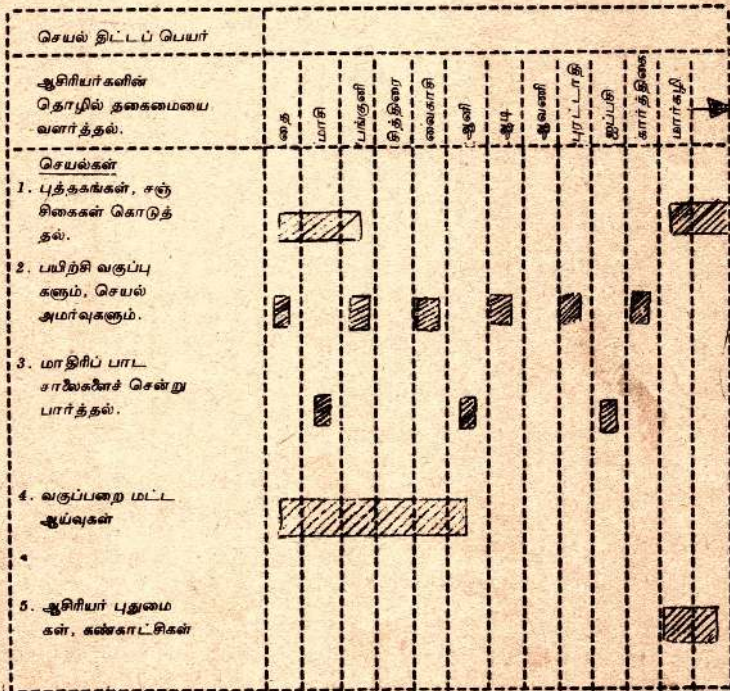 செயல் திட்டப் பெயர்
ஆசிரியர்களின்
தொழில் தகைமையை
வளர்த்தல்.
தை
மாசி
பங்குனி
சித்திரை
வைகாசி
ஆனி
ஆடி
ஆவணி
புரட்டாதி
ஐப்பசி
கார்த்திகை
மார்கழி
செயல்கள்
1. புத்தகங்கள், சஞ்
சிகைகள் கொடுத்
தல்.
2. பயிற்சி வகுப்பு
களும், செயல்
அமர்வுகளும்.
3. மாதிரிப் பாட
சாலைகளைச் சென்று
பார்த்தல்.
4. வகுப்பறை மட்ட
ஆய்வுகள்
5. ஆசிரியர் புதுமை
கள், கண்காட்சிகள்